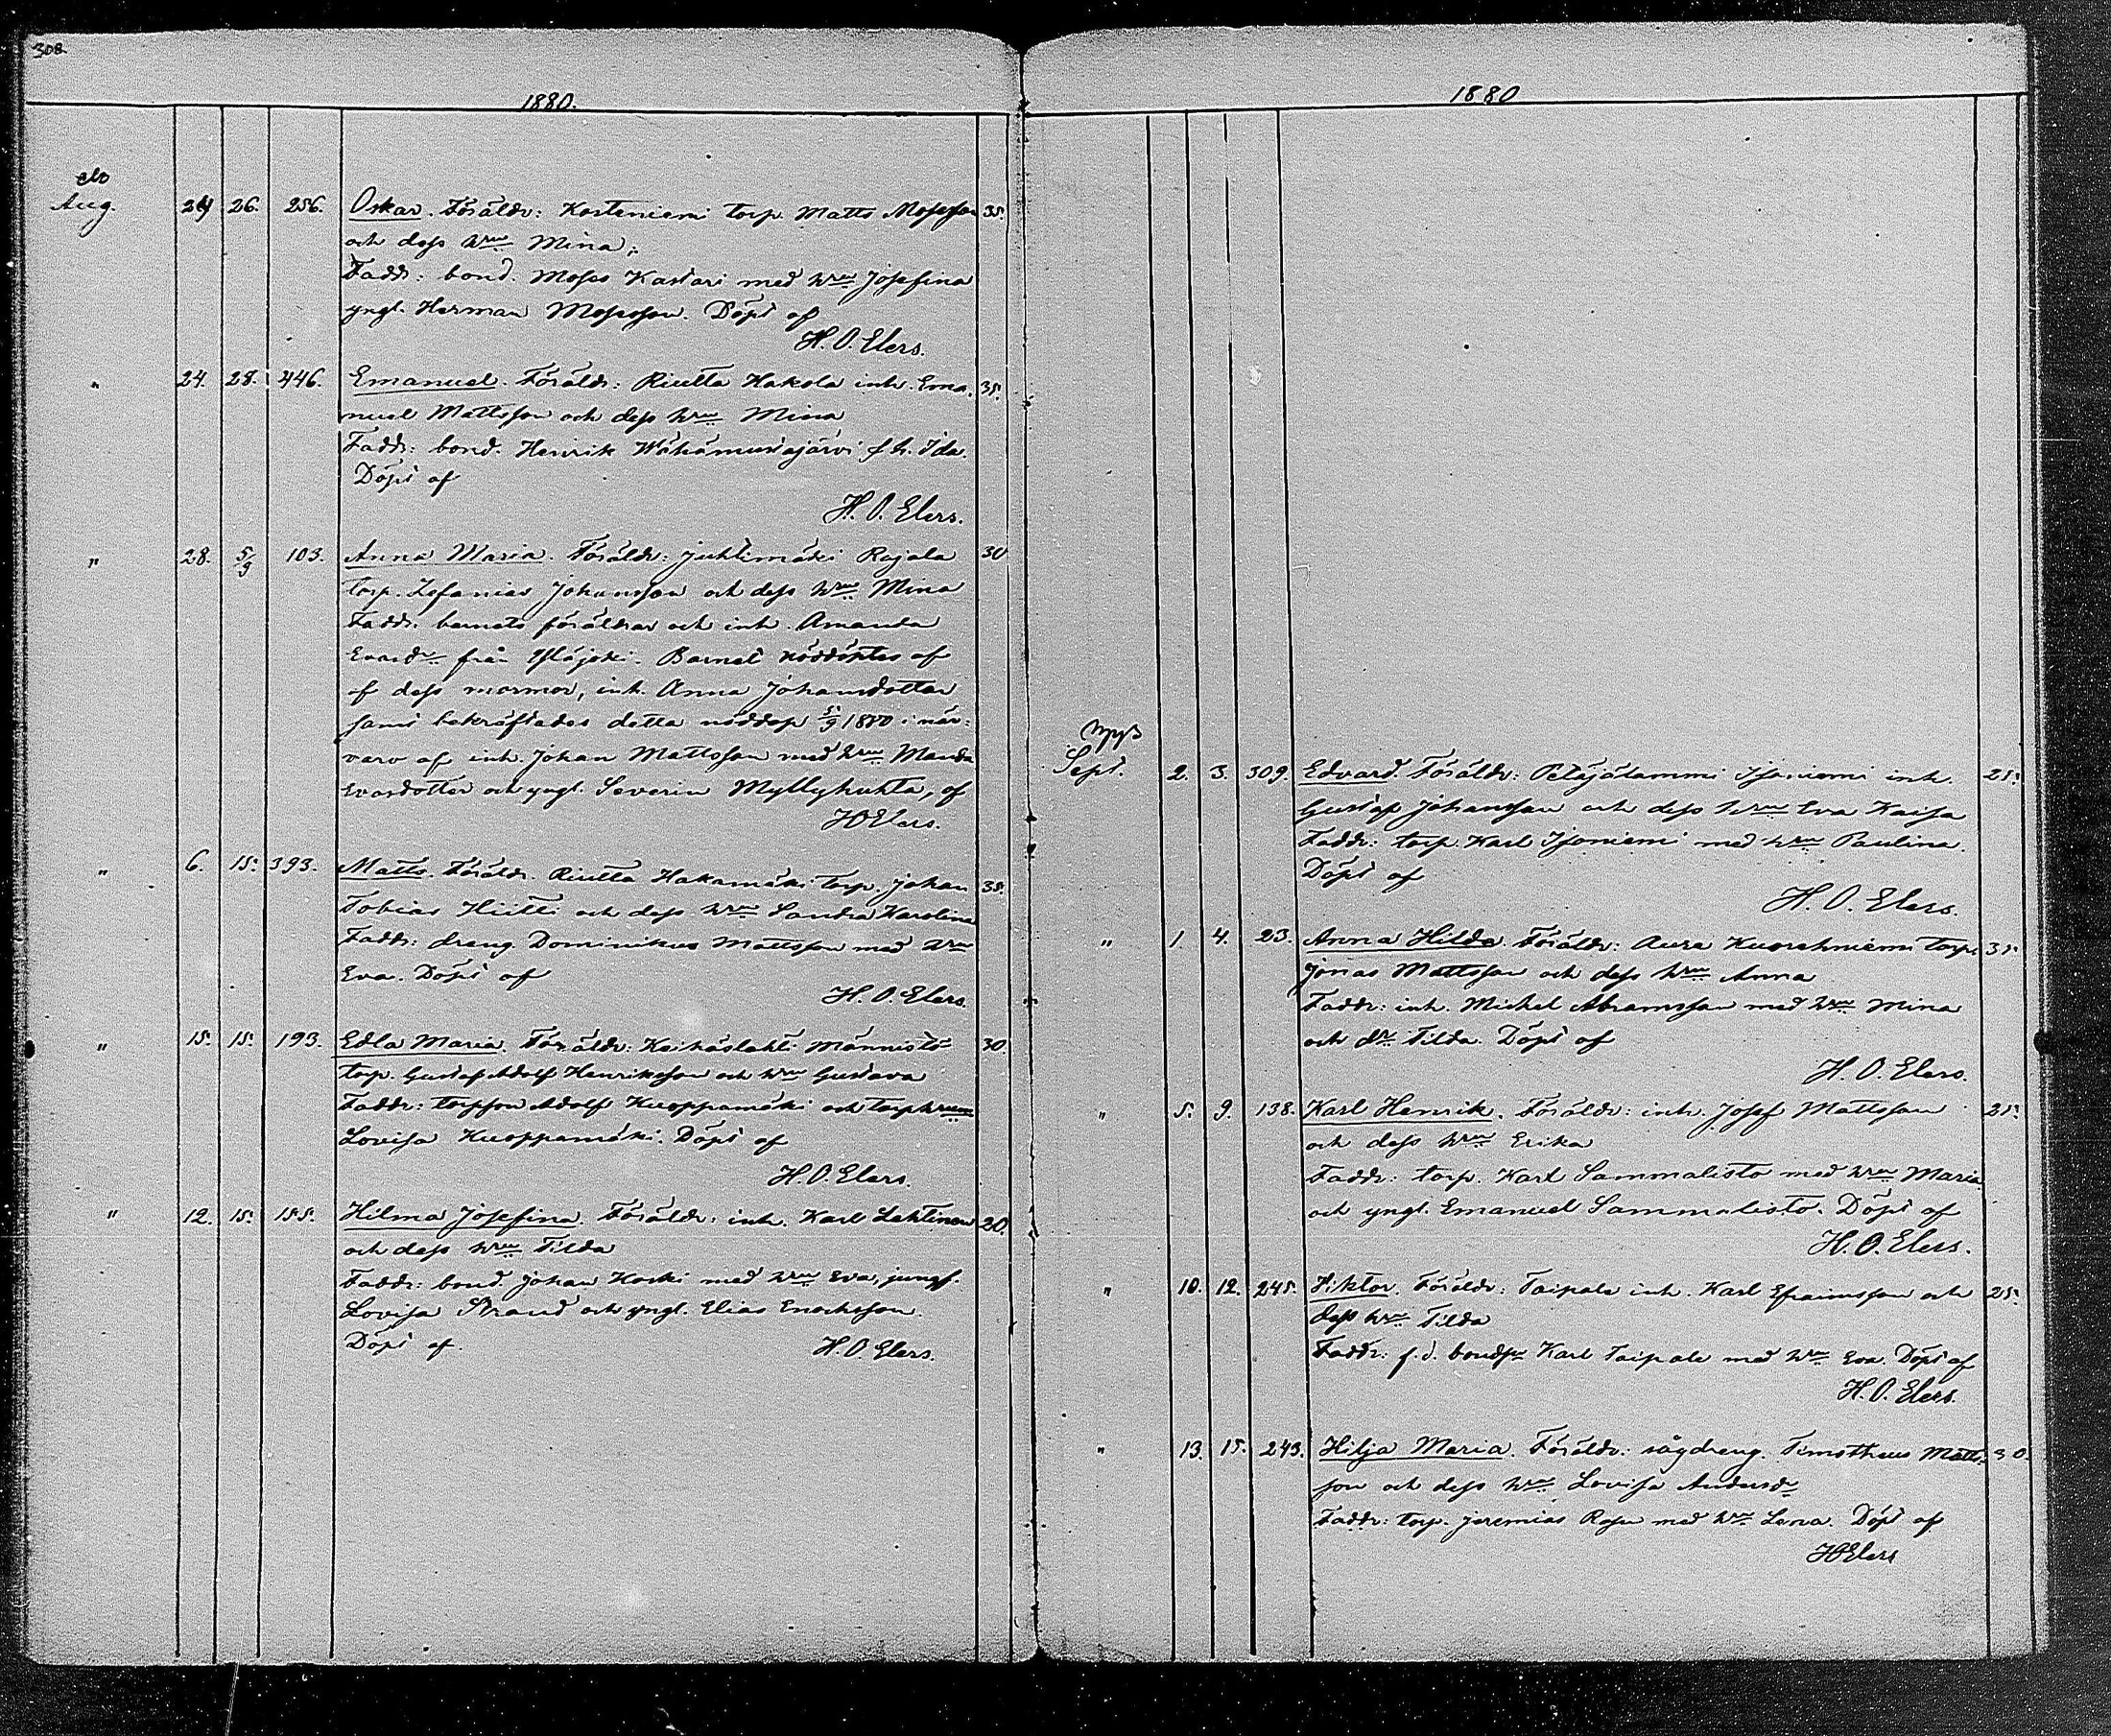 308
1880.
elo
Aug. 24 26. 256. Oskar. Föräldr: Kosteniemi torp. Matts Mosesson 35.
och dess hru Mina;
Faddr: bond. Moses Kastari med hru Josefina
yngl. Herman Mosesson. Döpt af
H. O. Elers.
" 24. 28. 446. Emanuel. Föräldr: Riutta Hakola inh. Ema- 35.
nuel Mattsson och dess hru Mina
Faddr: bond. Henrik Wähämustajärvi f h. Ida.
Döpt af
H. O. Elers.
" 28. 5/9 103. Anna Maria. Föräldr: Juhtimäki Rajala 30
torp. Zefanias Johansson och dess hru Mina
Faddr. barnets föräldrar och inh. Amanda
Evasdr från Yläjoki. Barnet nöddöptes af
af dess mormor, inh. Anna Johansdotter
samt bekräftades detta nöddop 5/9 1880 i när-
varo af inh. Johan Mattsson med hru Manda
Evasdotter och yngl. Severin Myllyhuhta, af
HOElers.
" 6. 15. 393. Matts. Föräldr. Riutta Hakamäki torp. Johan 35.
Tobias Hiitti och dess hru Sandra Karolina
Faddr: dreng. Dominikus Mattsson med hru
Eva. Döpt af
H. O. Elers.
" 15. 15. 193. Edla Maria. Föräldr: Keihäslahti Männistö 30.
torp. Gustaf Adolf Henriksson och hru Gustava
Faddr: torpson Adolf Kuoppamäki och torphrun
Lovisa Kuoppamäki. Döpt af
H. O. Elers.
" 12. 15. 155. Hilma Josefina. Föräldr: inh. Karl Lehtinen 20.
och dess hru Tilda
Faddr: bond. Johan Koski med hru Eva, jungf.
Lovisa Strand och yngl. Elias Enochsson.
Döpt af. H. O. Elers.
1880
syys
Sept. 2. 3. 309. Edvard. Föräldr: Petäjälammi Isoniemi inh. 25.
Gustaf Johansson och dess hru Eva Kaisa
Faddr: torp. Karl Isoniemi med hru Paulina.
Döpt af
H. O. Elers.
" 1. 4. 23. Anna Hilda. Föräldr: Aura Kuorehniemi torp. 35.
Jonas Mattsson och dess hru Anna
Faddr: inh. Mickel Abramsson med hru Mina
och dr Tilda. Döpt af
H. O. Elers.
" 5. 9. 138. Karl Henrik. Föräldr: inh. Josef Mattsson 25.
och dess hru Erika
Faddr: torp. Karl Sammalisto med hru Maria
och yngl. Emanuel Sammalisto. Döpt af
H. O. Elers.
" 10. 12. 245. Viktor. Föräldr: Taipale inh. Karl Efraimsson och 25.
dess hru Tilda
Faddr: f. d. bond Karl Taipale med hru Eva. Döpt af
H. O. Elers.
" 13. 15. 243. Hilja Maria. Föräldr: sågdreng. Timotheus Matts- 30.
son och dess hru Lovisa Andersdr
Faddr: torp. Jeremias Rosu med hru Lena. Döpt af
HOElers